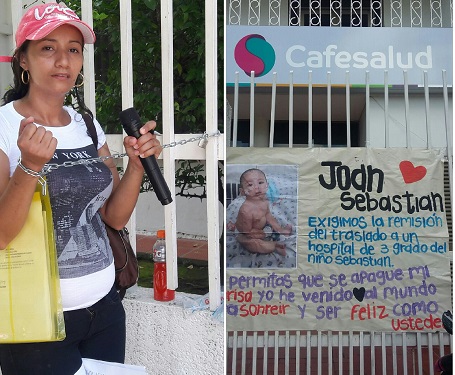 NEW YORK
Cafesalud
Joan
Sebastian
EXIGIMOS la remisión
del traslado a un
hospital de 3 grado del
niño Sebastian.
permitas que se apague mi
risa yo he venido al mundo
a sonreir y ser feliz como
ustede